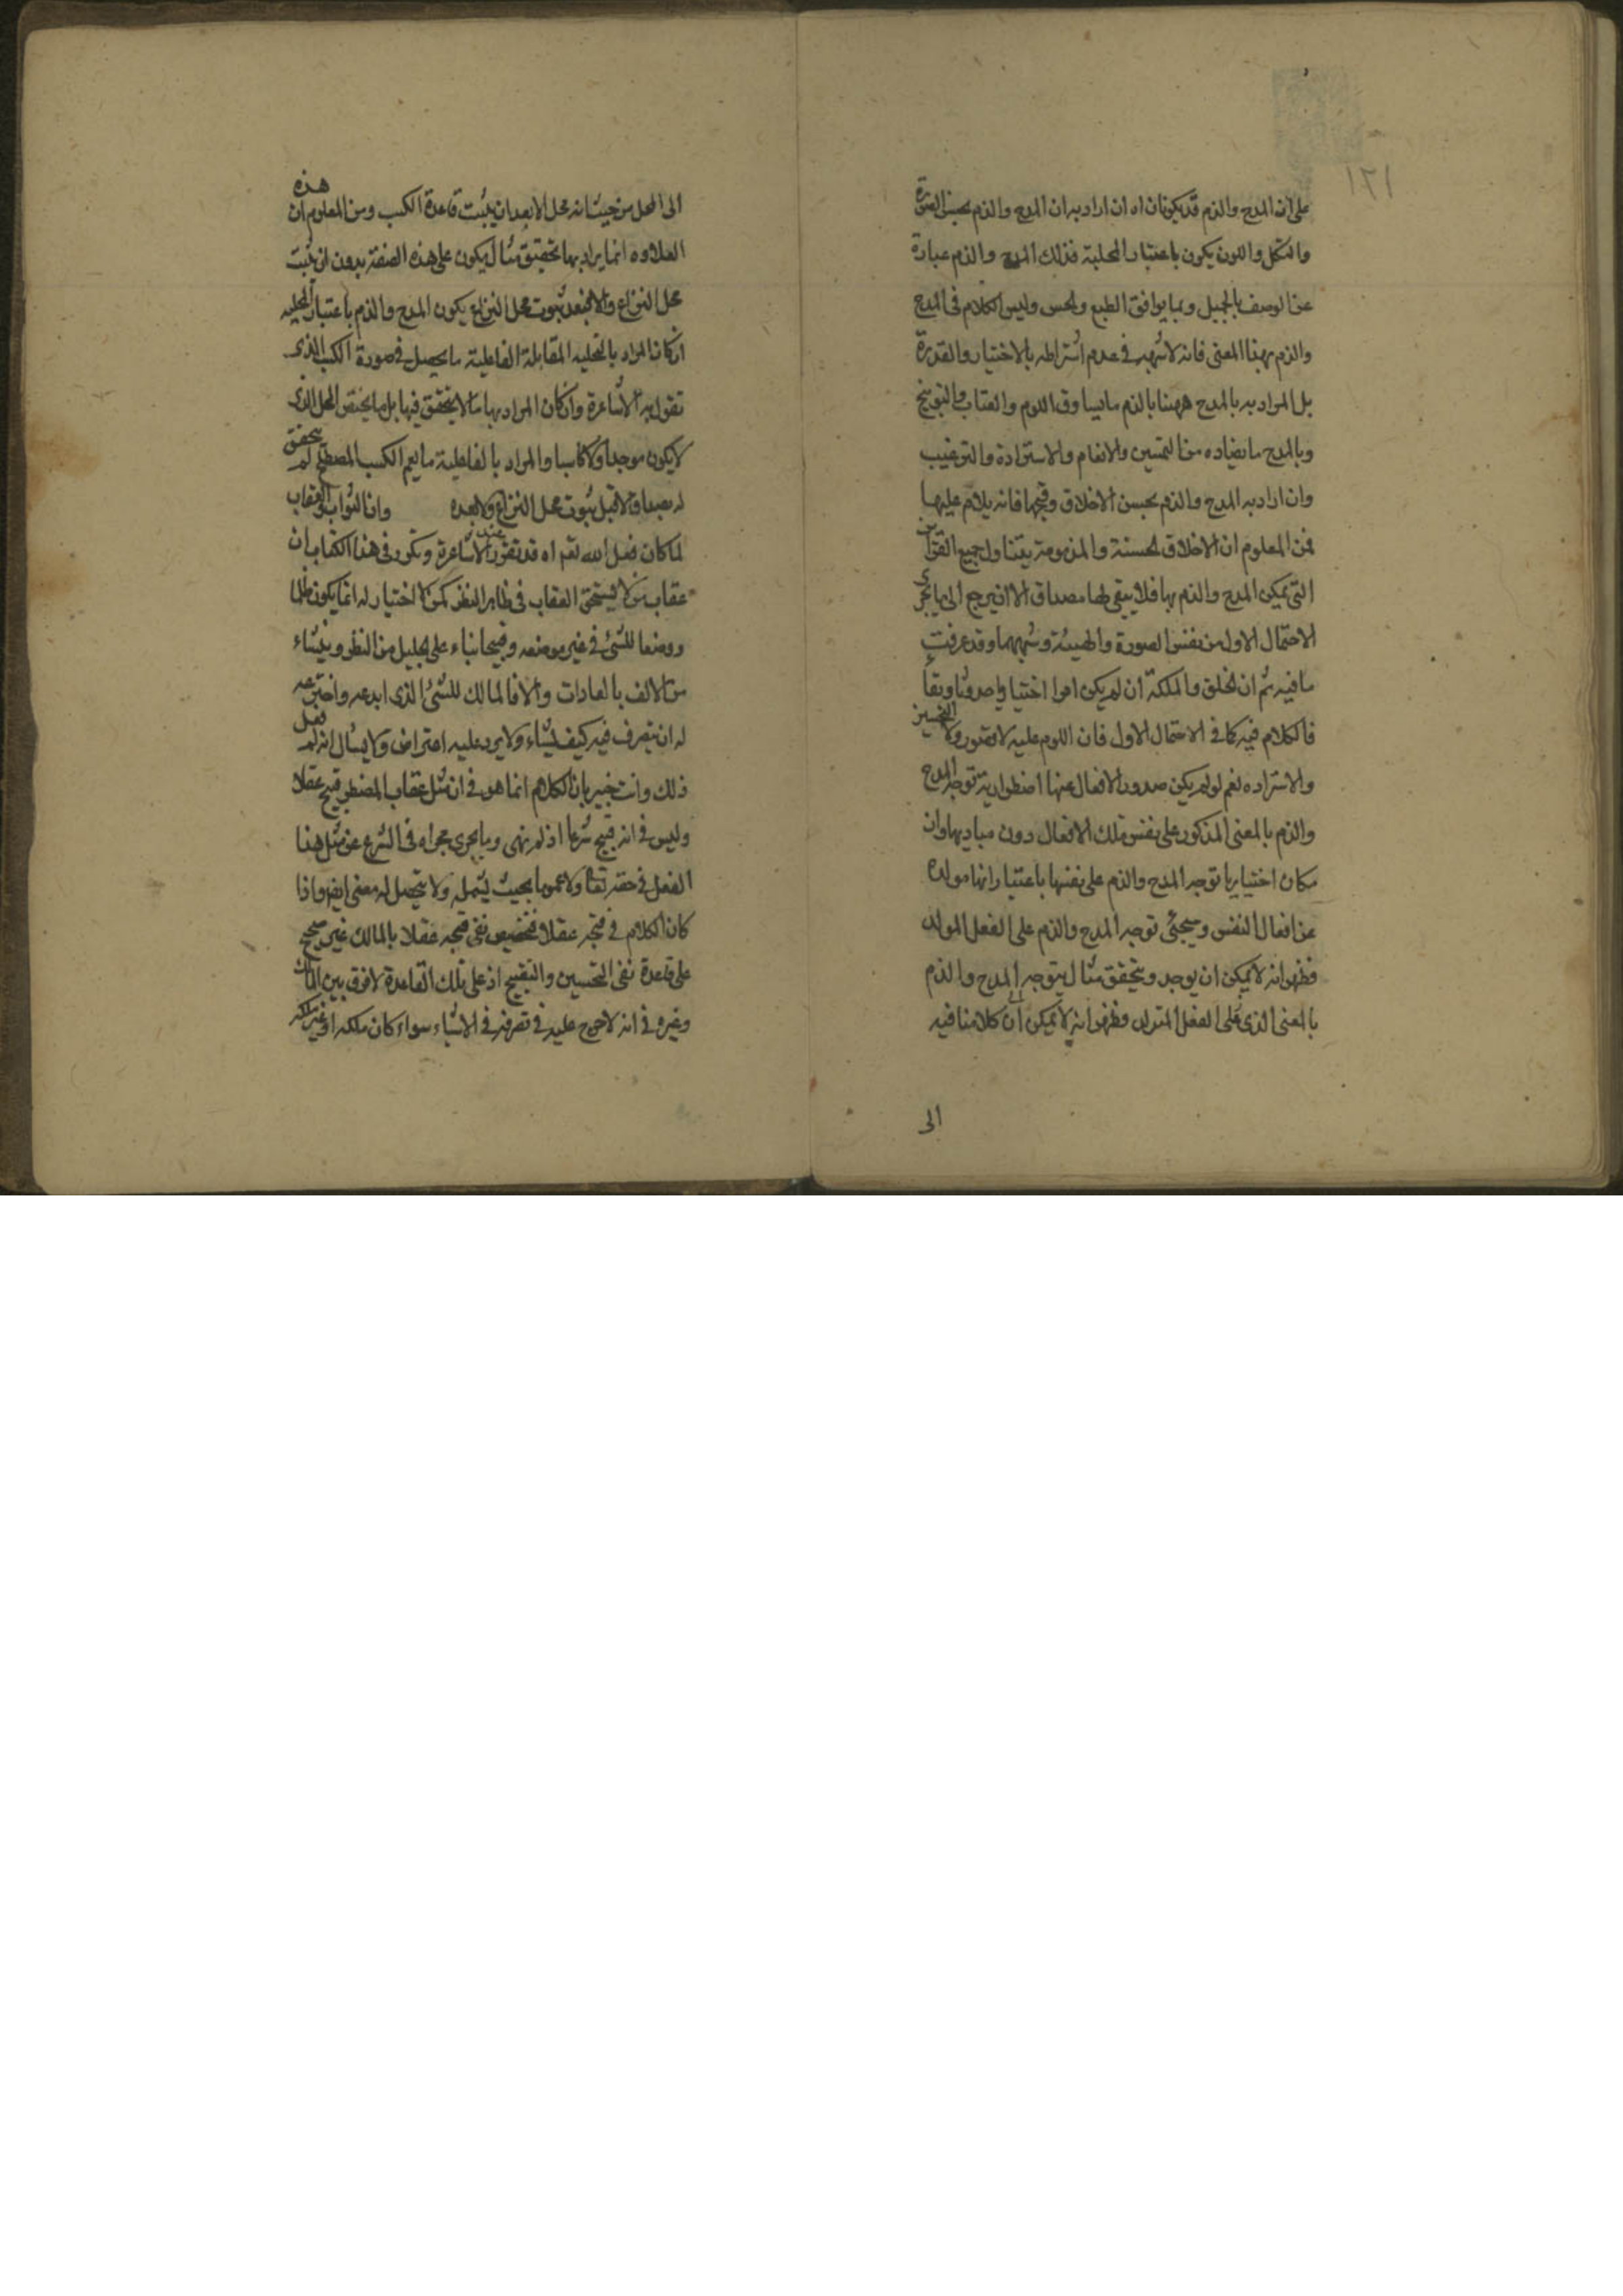 ١٢١
على ان المدح والذم قد يكونان اه ان اراد به ان المدح والذم بحسن الصورة
والشكل واللون يكون باعتبار المحلية فذلك المدح والذم عبارة
عن الوصف بالجميل وبما يوافق الطبع والحس وليس الكلام في المدح
والذم بهذا المعنى فانه لا شبهة في عدم اشتراطه بالاختيار والقدرة
بل المراد به بالمدح ههنا بالذم ما يساوق اللوم والعتاب والتوبيخ
وبالمدح ما يضاده من التحسين والانعام والاستزادة والترغيب
وان اراد به المدح والذم بحسن الاخلاق وقبحها فانه يلام عليها
فمن المعلوم ان الاخلاق الحسنة والمذمومة يتناول جميع القوات
التي يمكن المدح والذم بها فلا يبقى لها مصداق الا ان يرجع الى ما يجرى
الاحتمال الاول من نفس الصورة والهيئة وشبههما وقد عرفت
ما فيه ثم ان الخلق والملكة ان لم يكن امرا اختياريا حدوثا وبقاء
فالكلام فيه كما في الاحتمال الاول فان اللوم عليه لا يتصور ولا التحسين
والاستزاده نعم لو لم يكن صدور الافعال عنها اضطرارية توجه المدح
والذم بالمعنى المذكور على نفس تلك الافعال دون مباديها وان
كان اختياريا توجه المدح والذم على نفسها باعتبار انها مولدة
عن افعال النفس وسيجئ توجه المدح والذم على الفعل المولد
فظهر انه لا يمكن ان يوجد ويتحقق مثال يتوجه المدح والذم
بالمعنى الذي على الفعل المتولد فظهر انه لا يمكن ان كلامنا فيه
الى
الى المحل من حيث انه محل الا بعد ان يثبت قاعدة الكسب ومن المعلوم ان هذه
العلاوه انما يراد بها تحقيق مثال يكون على هذه الصفة بدون ان يثبت
محل النزاع والا فبعد ثبوت محل النزاع يكون المدح والذم باعتبار المحليه
ان كان المراد بالمحليه المقابلة الفاعلية ما يحصل في صورة الكسب الذي
تقول به الاشاعرة وان كان المراد بها ما لا يتحقق فيها بل ما يختص المحل الذي
لا يكون موجدا ولا كاسبا والمراد بالفاعلية ما يعم الكسب المصطلح لم يتحقق
له مصداق لا قبل ثبوت محل النزاع ولا بعده وان الثواب والعقاب
لما كان فعل الله تعم اه قد تقرر عند الاشاعرة وتكرر في هذا الكتاب ان
عقاب من لا يستحق العقاب في ظاهر النظر كمن لا اختيار له انما يكون ظلما
ووضعا للشئ في غير موضعه وقبيحا بناء على الجليل من النظر وينشاء
من الالف بالعادات والا فالمالك للشئ الذي ابدعه واخترعه
له ان يتصرف فيه كيف يشاء ولا يرد عليه اعتراض ولا يسال انه لم فعل
ذلك وانت خبير بان الكلام انما هو في ان مثل عقاب المضطر قبيح عقلا
وليس في انه قبيح شرعا اذ لم نهى وما يجرى مجراه في الشرع عن مثل هذا
الفعل في حقه تعالى ولا عموما بحيث يشمله ولا يتحصل له معنى ايضا واذا
كان الكلام في قبحه عقلا فتخصيص نفي قبحه عقلا بالمالك غير صحيح
على قاعدة نفي التحسين والتقبيح اذ على تلك القاعدة لا فرق بين المالك
وغيره في انه لا حرج عليه في تصرفه في الاشياء سواء كان ملكه او غير ملكه